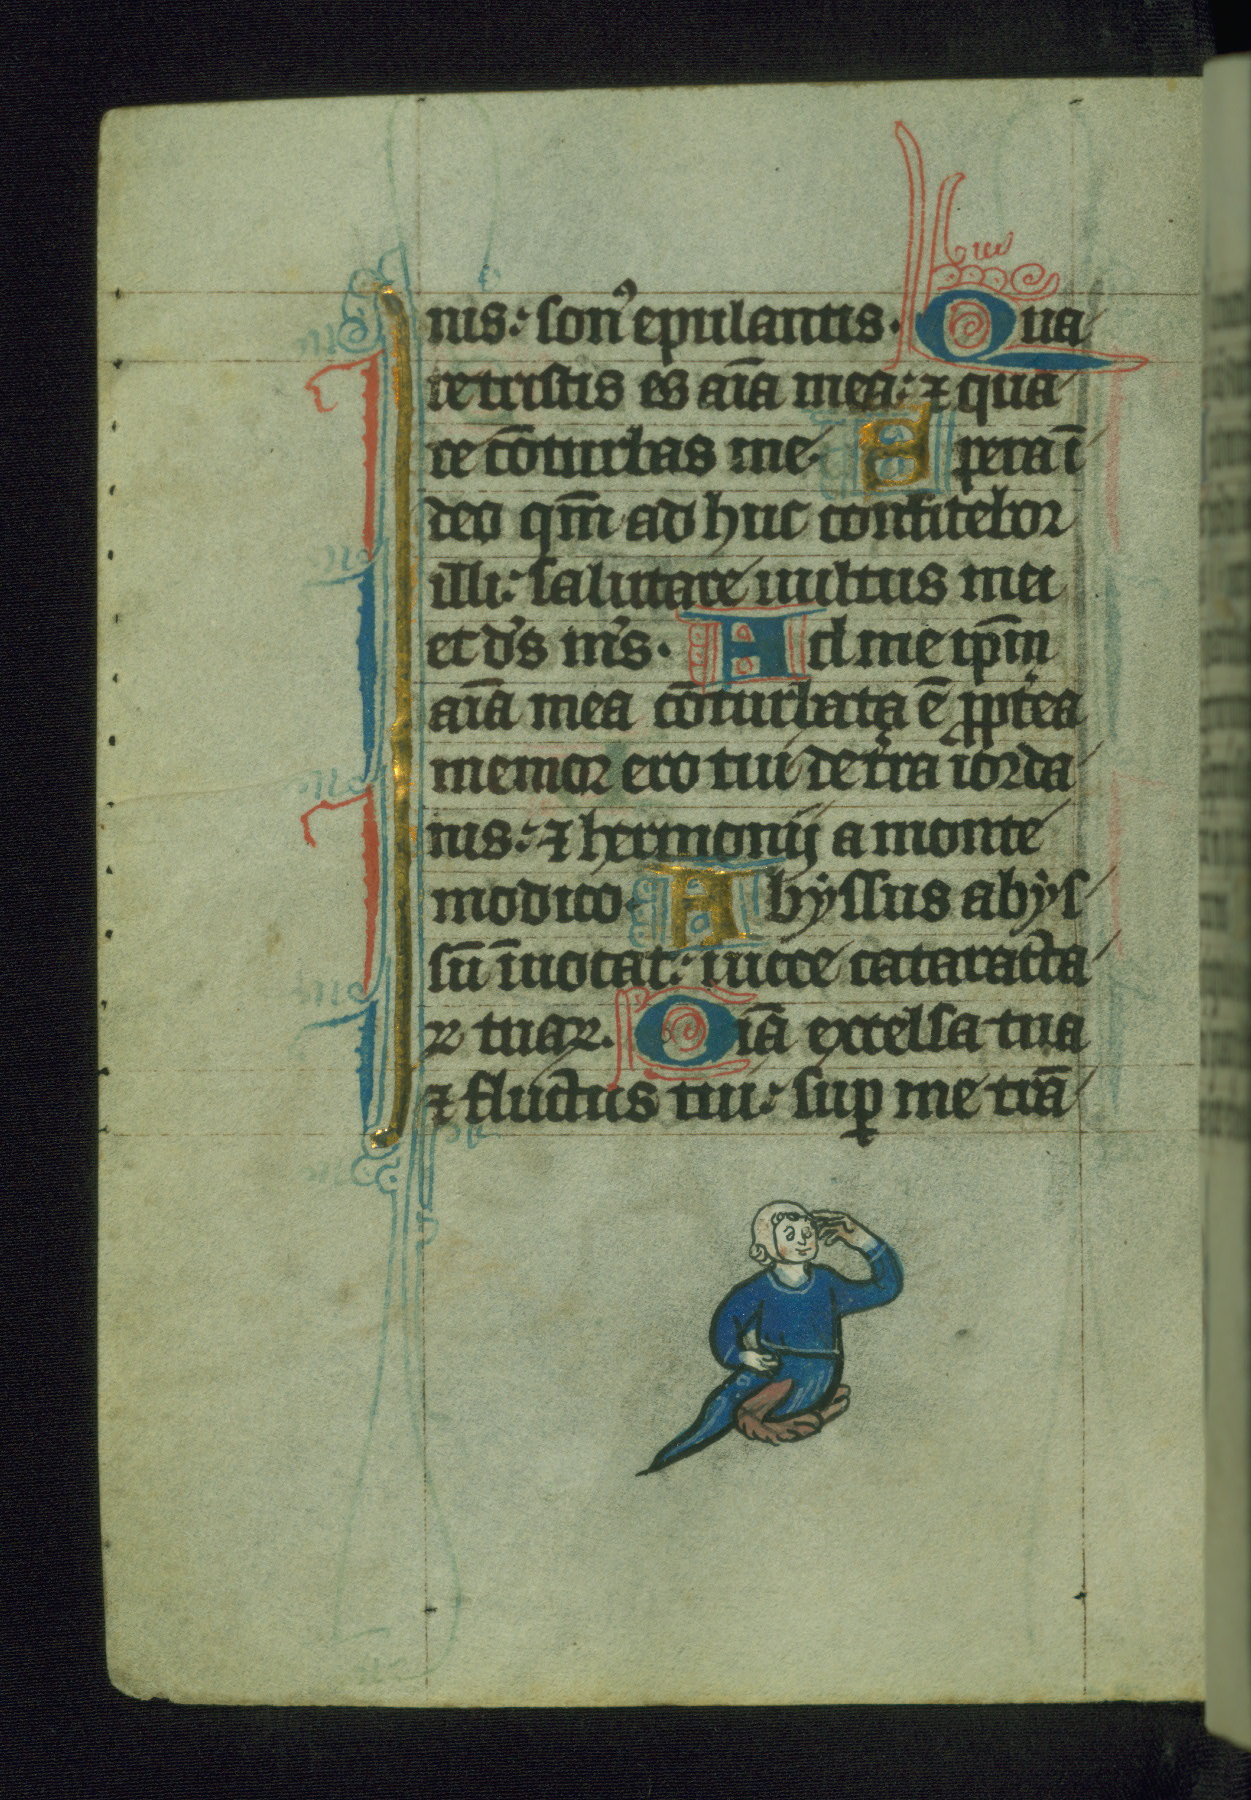 nis: son᾽ epulantis. Qua
re tristis es aīa mea: ⁊ qua
re cōturbas me. Spera ī
deo qm̄ ad huc confitebor
illi: salutare uultus mei
et d̄s m̄s. Ad me ip̄m
aīa mea cōturbata ē ꝓpt̄ea
memor ero tui de t̄ra iorda
nis: ⁊ hermonij a monte
modico. Abẏssus abẏs
sū īuocat: iu uoce cataracta
ꝝ tuaꝝ. Oīa excelsa tua
⁊ fluctus tui: suꝑ me trā